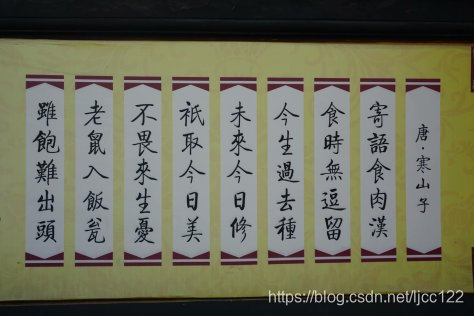 唐·寒山子
寄語食肉漢
食時無逗留
今生過去種
未來今日修
祇取今日美
不畏來生憂
老鼠入飯瓮
雖飽難出頭
https://blog.csdn.net/ljcc122